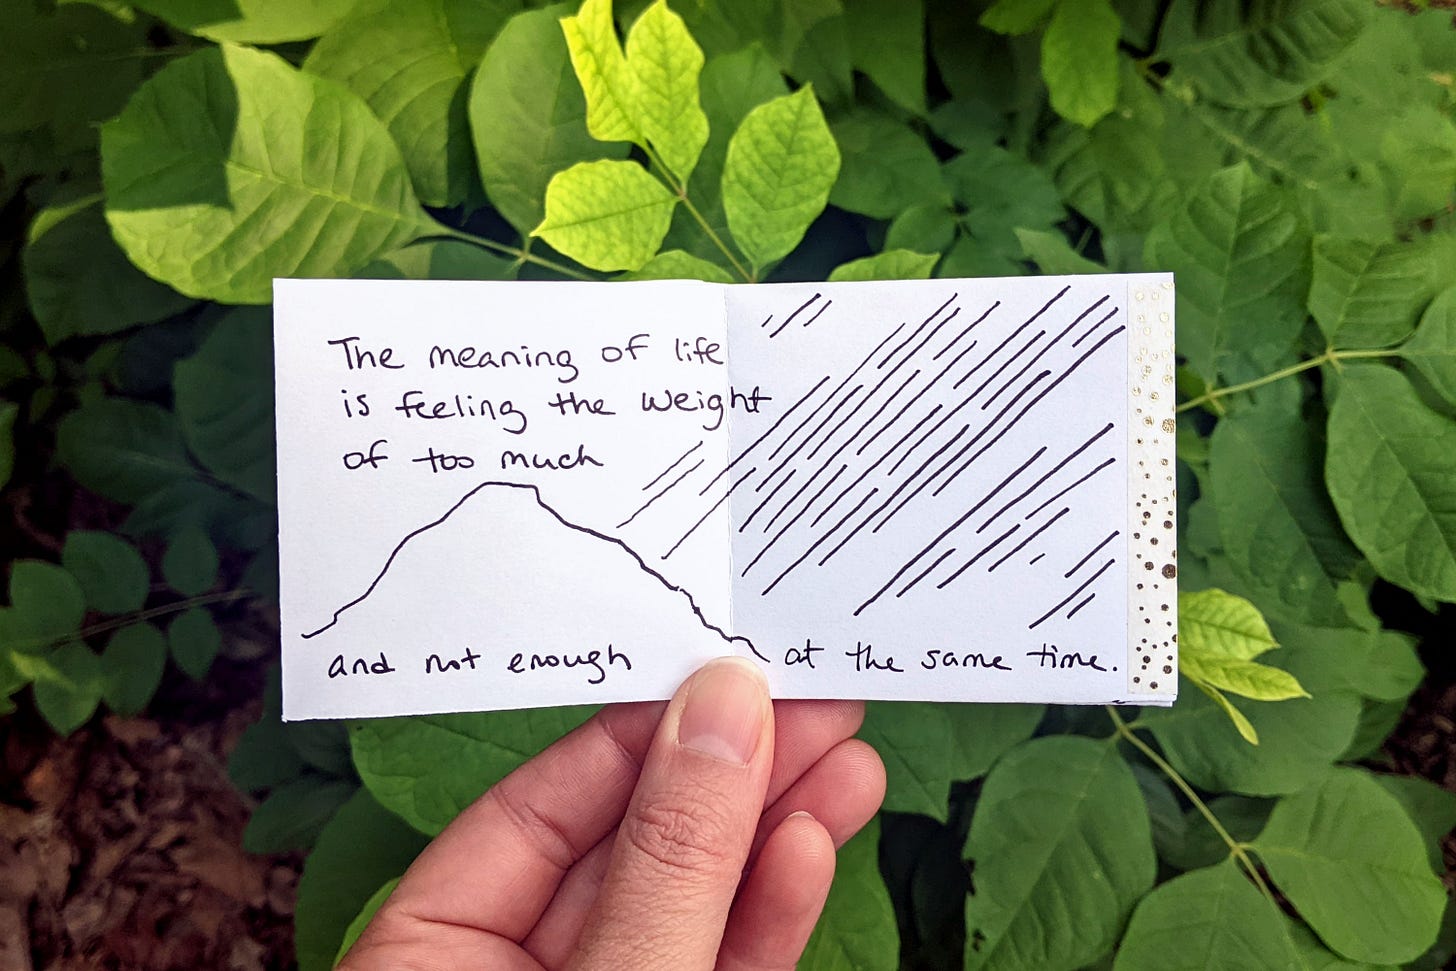 The meaning of life
is feeling the weight
of too much
and not enough at the same time.